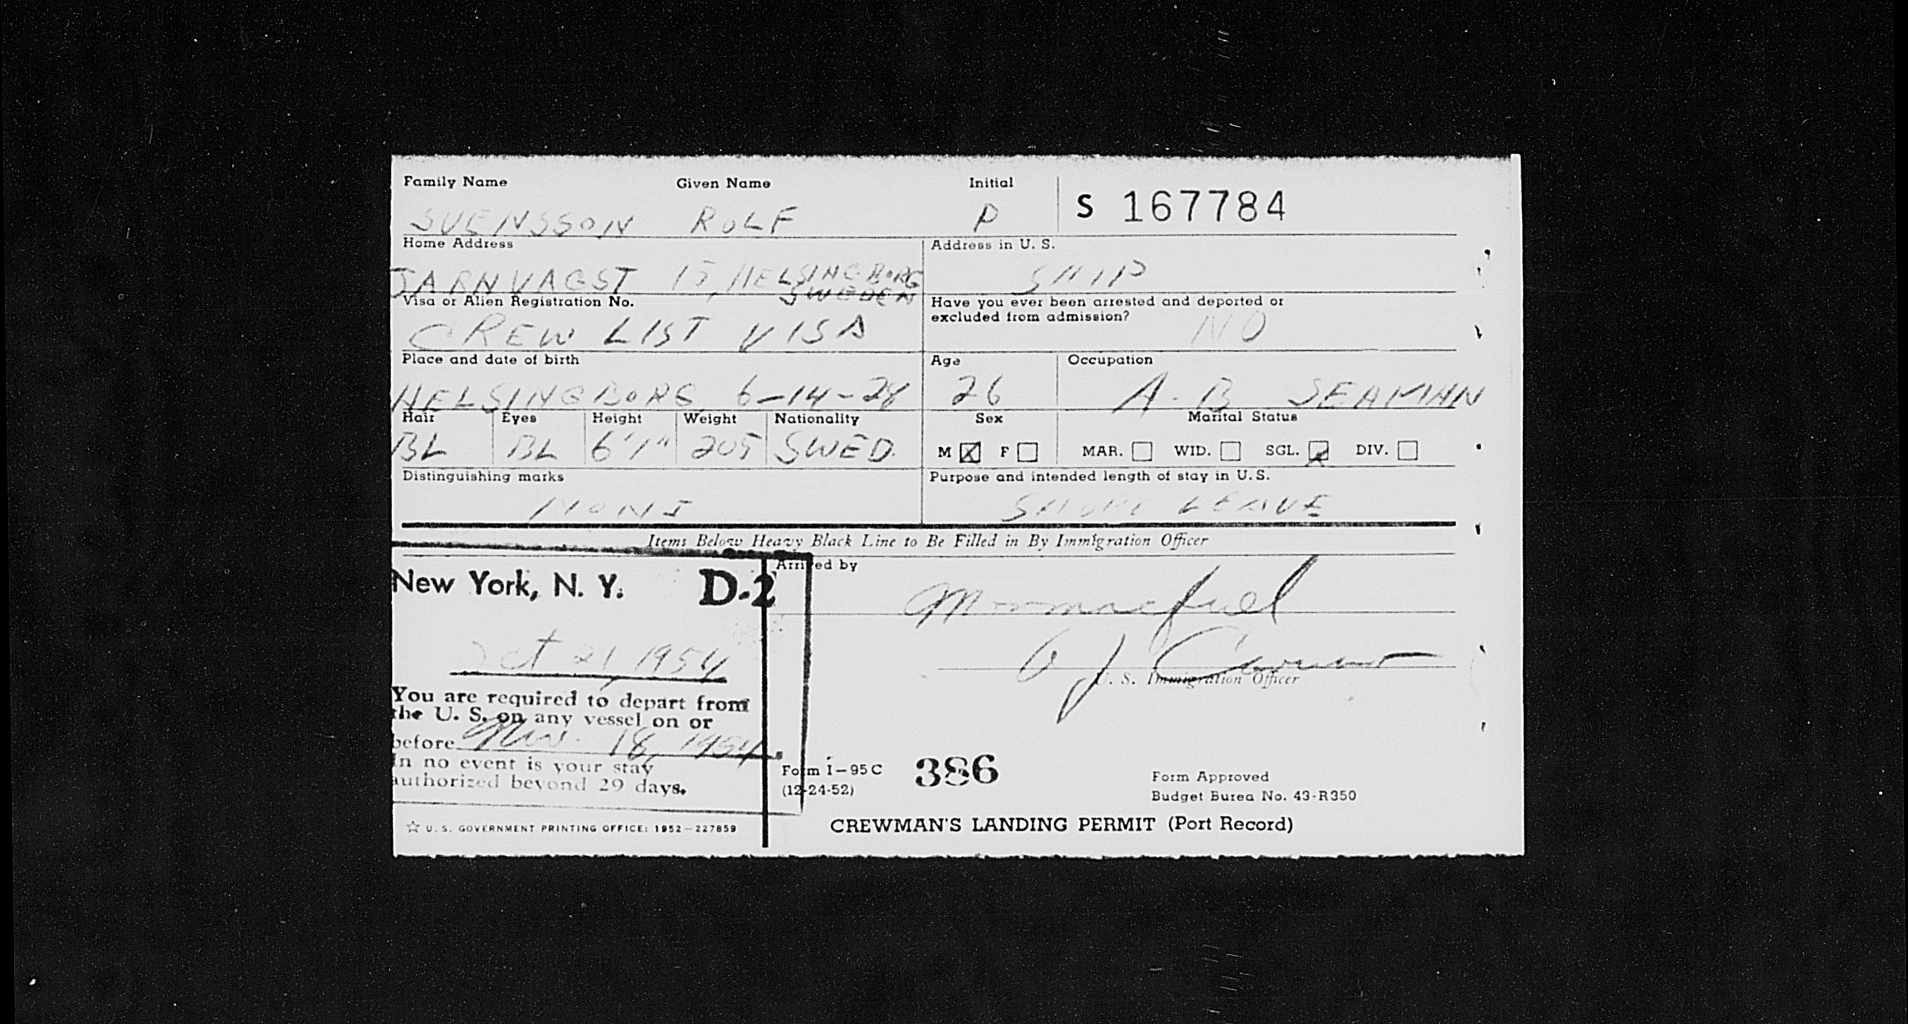 Family Name Given Name Initial
SVENSSON ROLF P S 167784
Home Address Address in U. S.
JARNVAGST 15, HELSINGBORG SHIP
SWEDEN
Visa or Alien Registration No. Have you ever been arrested and deported or
excluded from admission?
CREW LIST VISA NO
Place and date of birth Age Occupation
HELSINGBORG 6-14-28 26 A-B SEAMAN
Hair Eyes Height Weight Nationality Sex Marital Status
BL BL 6'1" 205 SWED. M F MAR. WID. SGL. DIV.
Distinguishing marks Purpose and intended length of stay in U.S.
NONE SHORE LEAVE
Items Below Heavy Black Line to Be Filled in By Immigration Officer
Arrived by
New York, N. Y. D-2
Mormacfuel
Oct 21, 1954
U. S. Immigration Officer
You are required to depart from
the U. S. on any vessel on or
before Nov. 18, 1954.
In no event is your stay
authorized beyond 29 days.
Form I-95 C 386 Form Approved
(12-24-52) Budget Burea No. 43-R350
☆ U. S. GOVERNMENT PRINTING OFFICE: 1952-227859 CREWMAN'S LANDING PERMIT (Port Record)